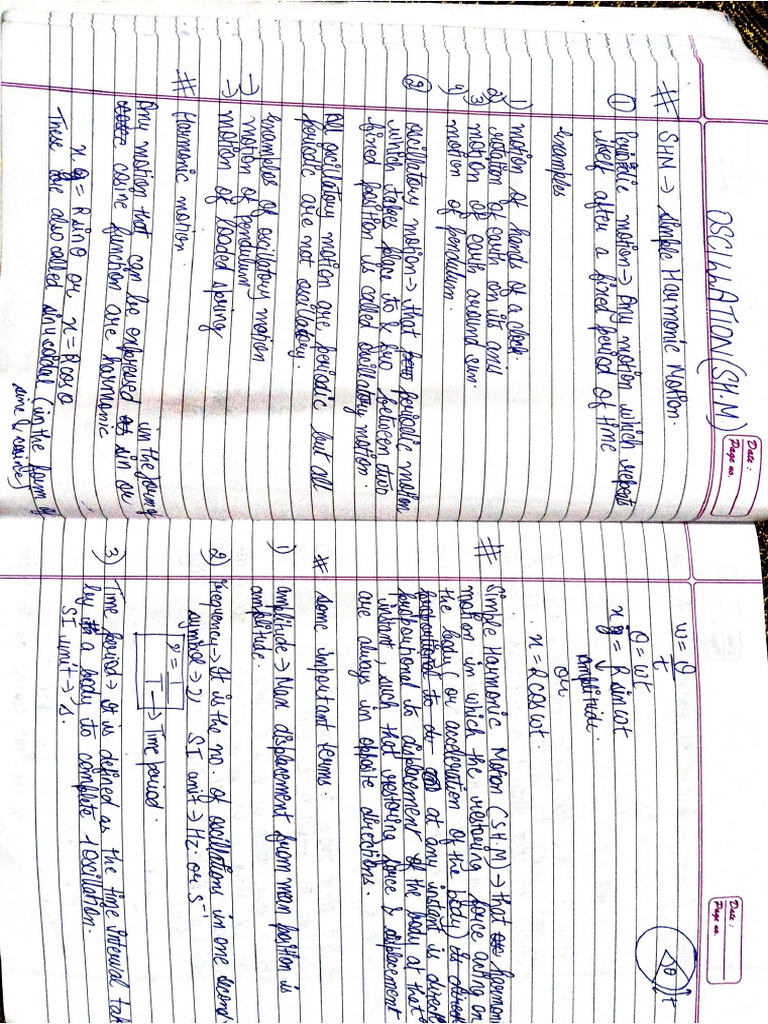 Date :
Page no.
OSCILLATION (S.H.M.)
# SHM → Simple Harmonic Motion.
① Periodic motion → Any motion which repeats
itself after a fixed period of time
examples
1) motion of hands of a clock.
2) rotation of earth on its axis
3) motion of earth around sun.
4) motion of pendulum.
② oscillatory motion → that periodic motion
which takes place to & fro between two
fixed position is called oscillatory motion.
All oscillatory motion are periodic but all
periodic are not oscillatory.
examples of oscillatory motion
→ motion of pendulum
→ motion of loaded spring
# Harmonic motion.
Any motion that can be expressed in the form of sin or
cosine function are harmonic
x = R sin θ or x = R cos θ
These are also called sinusoidal (in the form of
sine & cosine)
Date :
Page no.
w = θ/t
θ = wt
x = R sin wt
Amplitude.
or
x = R cos wt.
θ
t
# Simple Harmonic Motion (S.H.M) → that harmonic
motion in which the restoring force acting on
the body (or acceleration of the body is direct
at any instant is directly
proportional to displacement of the body at that
instant, such that restoring force & displacement
are always in opposite directions.
# some important terms.
1) amplitude → Max displacement from mean position is
amplitude.
2) Frequency → It is the no. of oscillations in one second
symbol → ν SI unit → Hz. or s⁻¹
ν = 1/T → Time period.
3) Time period → It is defined as the time interval
by a body to complete 1 oscillation.
SI unit → s.